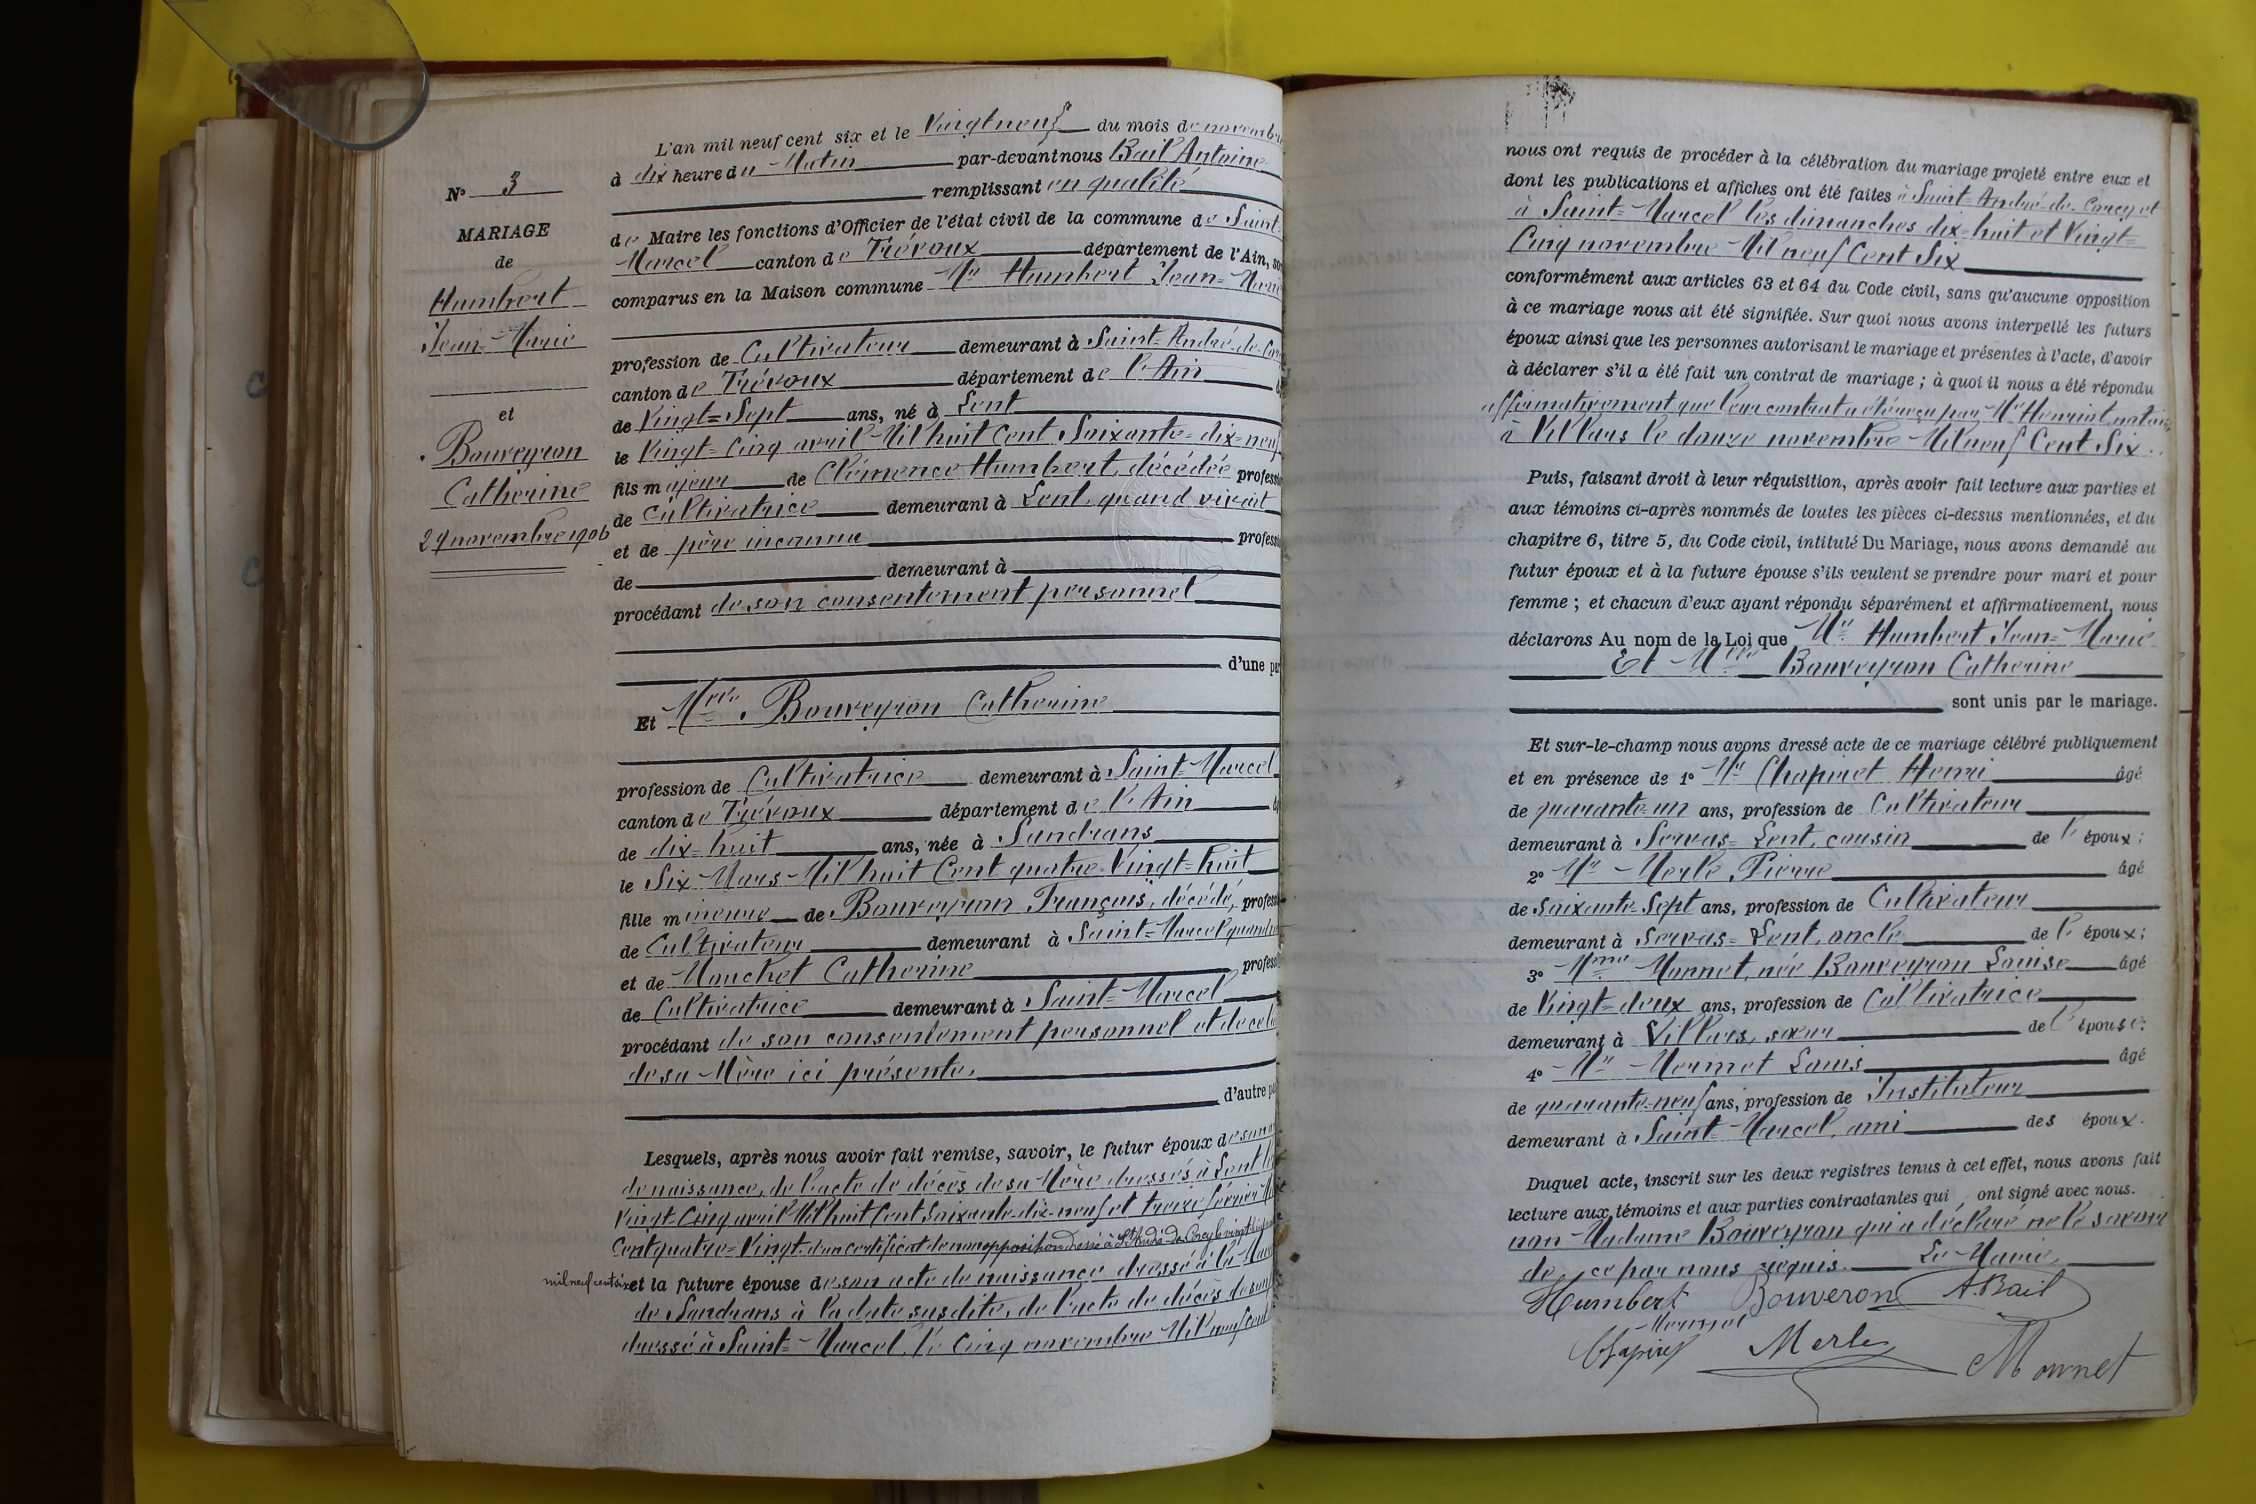 N° 3
MARIAGE
de
Humbert
Jean=Marie
et
Bouveyron
Catherine
29 novembre 1906
L'an mil neuf cent six et le Vingt neuf du mois de novembre
à dix heure du Matin par-devant nous Bail Antoine
remplissant en qualité
de Maire les fonctions d'Officier de l'état civil de la commune de Saint=
Marcel canton de Trévoux département de l'Ain, so
comparus en la Maison commune Mr Humbert Jean=Marie
profession de Cultivateur demeurant à Saint-André-de-Cor
canton de Trévoux département de l'Ain
de Vingt=Sept ans, né à Lent
le Vingt=Cinq avril Mil huit Cent Soixante=dix=neuf
fils majeur de Clémence Humbert, décédée professi
de Cultivatrice demeurant à Lent, quand vivait
et de père inconnu professi
de demeurant à
procédant de son consentement personnel
d'une par
Et Melle Bouveyron Catherine
profession de Cultivatrice demeurant à Saint=Marcel
canton de Trévoux département de l'Ain
de dix=huit ans, née à Sandrans
le Six Mars Mil huit Cent quatre-Vingt=huit
fille mineure de Bouveyron François, décédé, profess
de Cultivateur demeurant à Saint=Marcel quand
et de Manchet Catherine professi
de Cultivatrice demeurant à Saint=Marcel
procédant de son consentement personnel et de celui
de sa Mère ici présente,
d'autre pa
Lesquels, après nous avoir fait remise, savoir, le futur époux de son
de naissance, de l'acte de décès de sa Mère dressés à Lent le
Vingt-Cinq avril Mil huit Cent Soixante-dix-neuf et treize février
Cent quatre=Vingt, d'un certificat de non opposition dressé à St André-de-Corcy le vingt
mil neuf cent six et la future épouse de son acte de naissance dressé à la
de Sandrans à la date susdite, de l'acte de décès de son
dressé à Saint=Marcel, le Cinq novembre Mil neuf cent
nous ont requis de procéder à la célébration du mariage projeté entre eux et
dont les publications et affiches ont été faites à Saint=André-de-Corcy et
à Saint=Marcel les dimanches dix=huit et Vingt=
Cinq novembre Mil neuf Cent Six
conformément aux articles 63 et 64 du Code civil, sans qu'aucune opposition
à ce mariage nous ait été signifiée. Sur quoi nous avons interpellé les futurs
époux ainsi que les personnes autorisant le mariage et présentes à l'acte, d'avoir
à déclarer s'il a été fait un contrat de mariage ; à quoi il nous a été répondu
affirmativement que leur contrat a été reçu par Me notaire
à Villars le douze novembre Mil neuf Cent Six.
Puis, faisant droit à leur réquisition, après avoir fait lecture aux parties et
aux témoins ci-après nommés de toutes les pièces ci-dessus mentionnées, et du
chapitre 6, titre 5, du Code civil, intitulé Du Mariage, nous avons demandé au
futur époux et à la future épouse s'ils veulent se prendre pour mari et pour
femme ; et chacun d'eux ayant répondu séparément et affirmativement, nous
déclarons Au nom de la Loi que Mr Humbert Jean=Marie
Et Melle Bouveyron Catherine
sont unis par le mariage.
Et sur-le-champ nous avons dressé acte de ce mariage célébré publiquement
et en présence de 1° Mr Chapinet Henri âgé
de quarante=un ans, profession de Cultivateur
demeurant à Servas=Lent, cousin de l'époux ;
2° Mr Merle Pierre âgé
de soixante-Sept ans, profession de Cultivateur
demeurant à Servas=Lent, oncle de l'époux ;
3° Mme Monnet, née Bouveyron Louise âgé
de Vingt=deux ans, profession de Cultivatrice
demeurant à Villars, sœur de l'épouse ;
4° Mr Mermet Louis âgé
de quarante-neuf ans, profession de Instituteur
demeurant à Saint=Marcel, ami des époux.
Duquel acte, inscrit sur les deux registres tenus à cet effet, nous avons fait
lecture aux témoins et aux parties contractantes qui ont signé avec nous.
non Madame Bouveyron qui a déclaré ne le savoir
de ce par nous requis. Le Maire,
Humbert Bouveron A. Bail
Mermet
Chapinet Merle Monnet